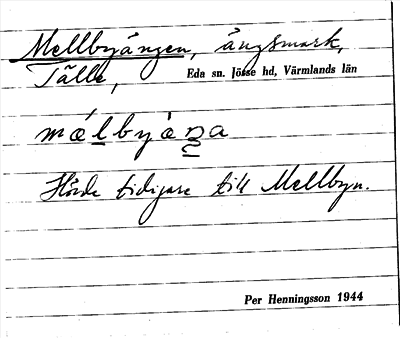 Mellbyängen, ängsmark,
Tälle, Eda sn. Jösse hd, Värmlands län
mǽlbyàŋa
Hörde tidigare till Mellbyn.
Per Henningsson 1944